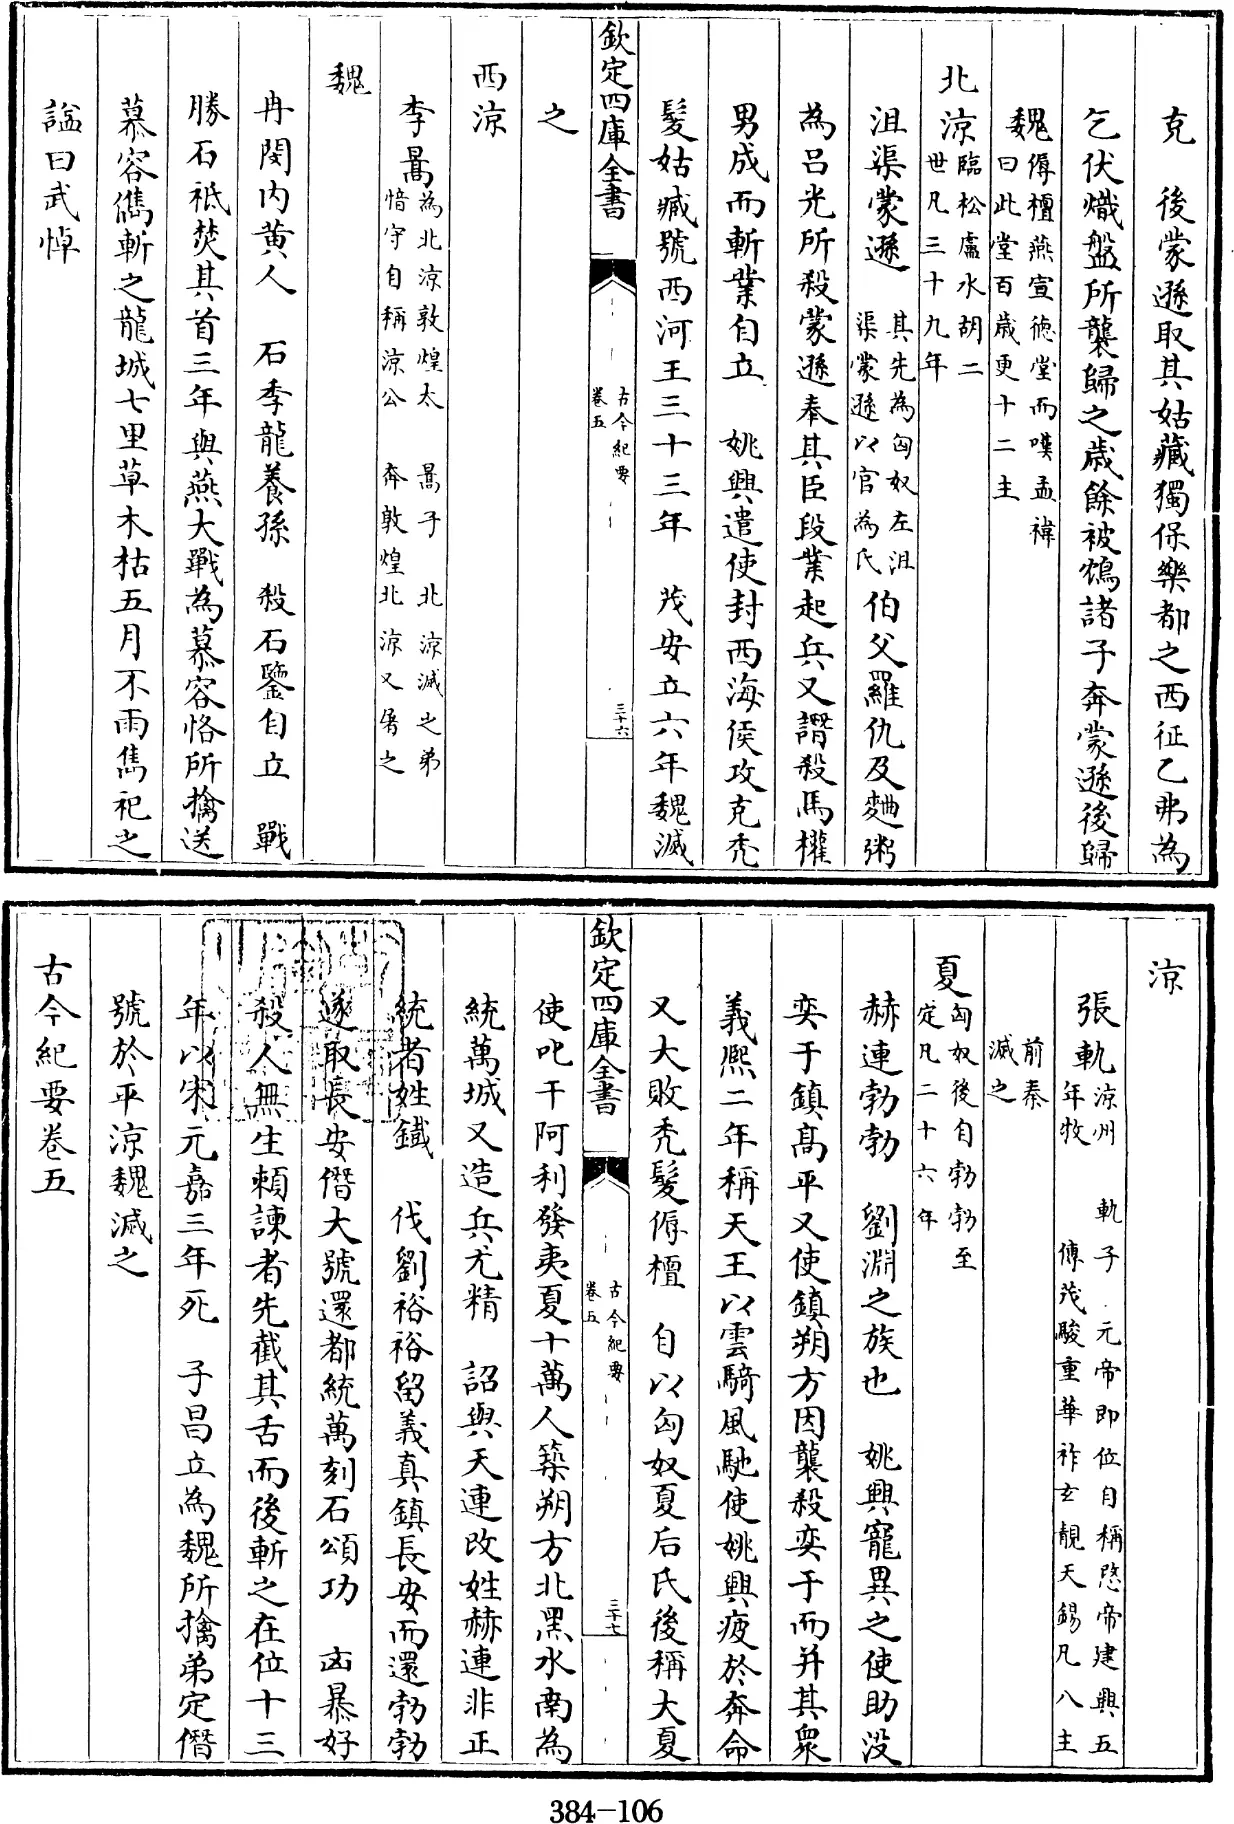 克　後蒙遜取其姑藏獨保樂都之西征乙弗為
乞伏熾盤所襲歸之歳餘被鴆諸子奔蒙遜後歸
魏傉檀燕宣徳堂而嘆孟禕
曰此堂百歳更十二主
北涼臨松盧水胡二
世凡三十九年
沮渠蒙遜　其先為匈奴左沮
渠蒙遜以官為氏伯父羅仇及麯粥
為吕光所殺蒙遜奉其臣段業起兵又譖殺馬權
男成而斬業自立　姚興遣使封西海侯攻克秃
髮姑臧號西河王三十三年　茂安立六年魏滅
欽定四庫全書
古今紀要
卷五
三十六
之
西涼
李暠為北涼敦煌太　暠子　北涼滅之弟
愔守自稱涼公　奔敦煌北涼又屠之
魏
冉閔内黄人　石季龍養孫　殺石鑒自立　戰
勝石祗焚其首三年與燕大戰為慕容恪所擒送
慕容儁斬之龍城七里草木枯五月不雨儁祀之
諡曰武悼
涼
張軌涼州　軌子　元帝即位自稱愍帝建興五
年牧　傳茂駿重華祚玄靚天錫凡八主
前秦
滅之
夏匈奴後自勃勃至
定凡二十六年
赫連勃勃　劉淵之族也　姚興寵異之使助没
奕于鎮髙平又使鎮朔方因襲殺奕于而并其衆
義熙二年稱天王以雲騎風馳使姚興疲於奔命
又大敗秃髮傉檀　自以匈奴夏后氏後稱大夏
欽定四庫全書
古今紀要
卷五
三十七
使叱干阿利發夷夏十萬人築朔方北黑水南為
統萬城又造兵尤精　詔與天連改姓赫連非正
統者姓鐡　伐劉裕裕留義真鎮長安而還勃勃
遂取長安僭大號還都統萬刻石頌功　凶暴好
殺人無生頼諫者先截其舌而後斬之在位十三
年以宋元嘉三年死　子昌立為魏所擒弟定僭
號於平涼魏滅之
古今紀要卷五
384-106